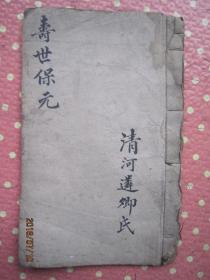 壽世保元
清河蓮卿氏
2018/07/12